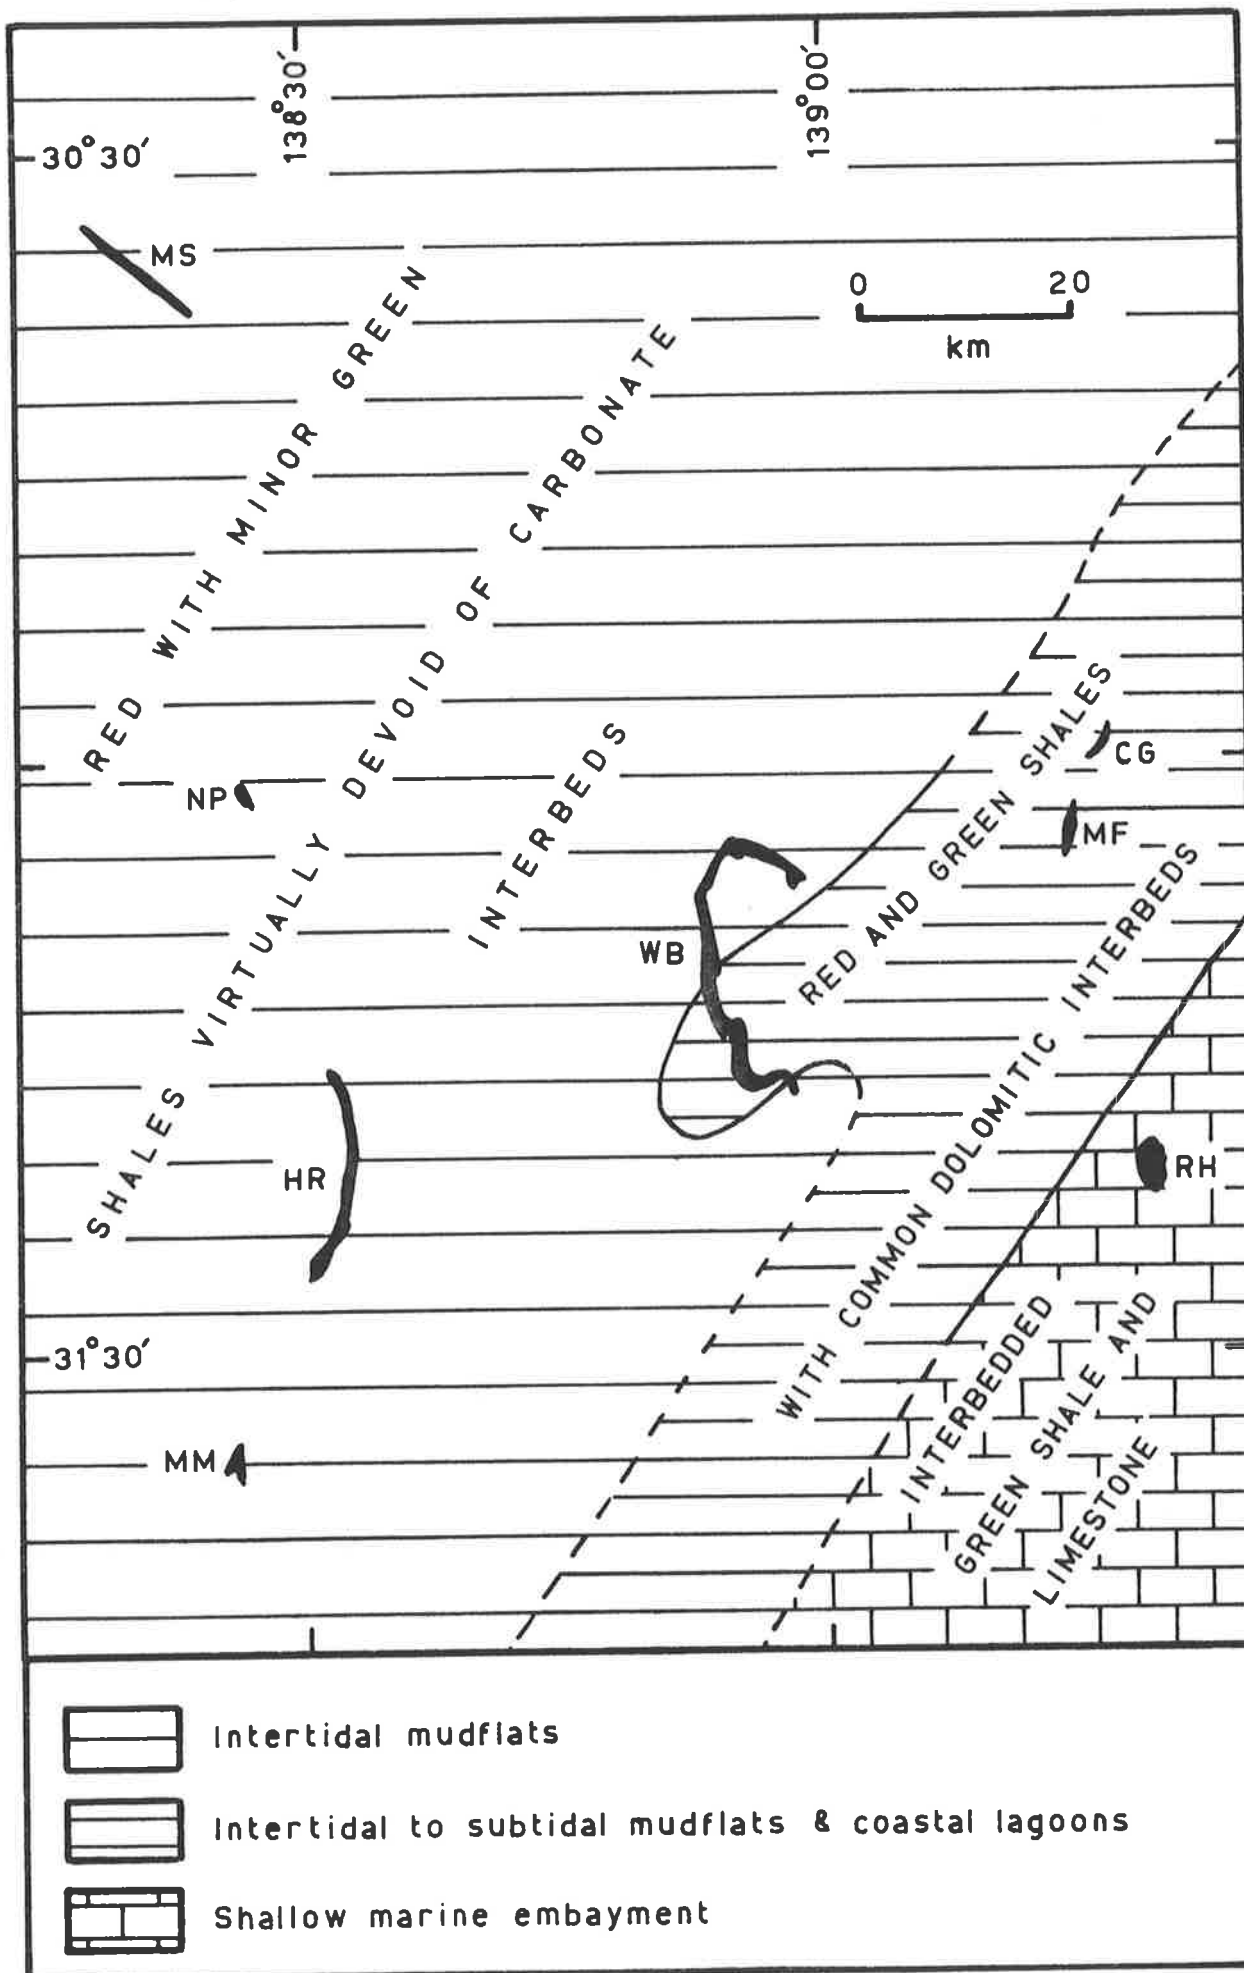 138°30′
139°00′
30°30′
MS
0 20
km
RED WITH MINOR GREEN
SHALES VIRTUALLY DEVOID OF CARBONATE
INTERBEDS
NP
CG
MF
WB
RED AND GREEN SHALES
WITH COMMON DOLOMITIC INTERBEDS
HR
RH
31°30′
INTERBEDDED
GREEN SHALE AND
LIMESTONE
MM
Intertidal mudflats
Intertidal to subtidal mudflats & coastal lagoons
Shallow marine embayment